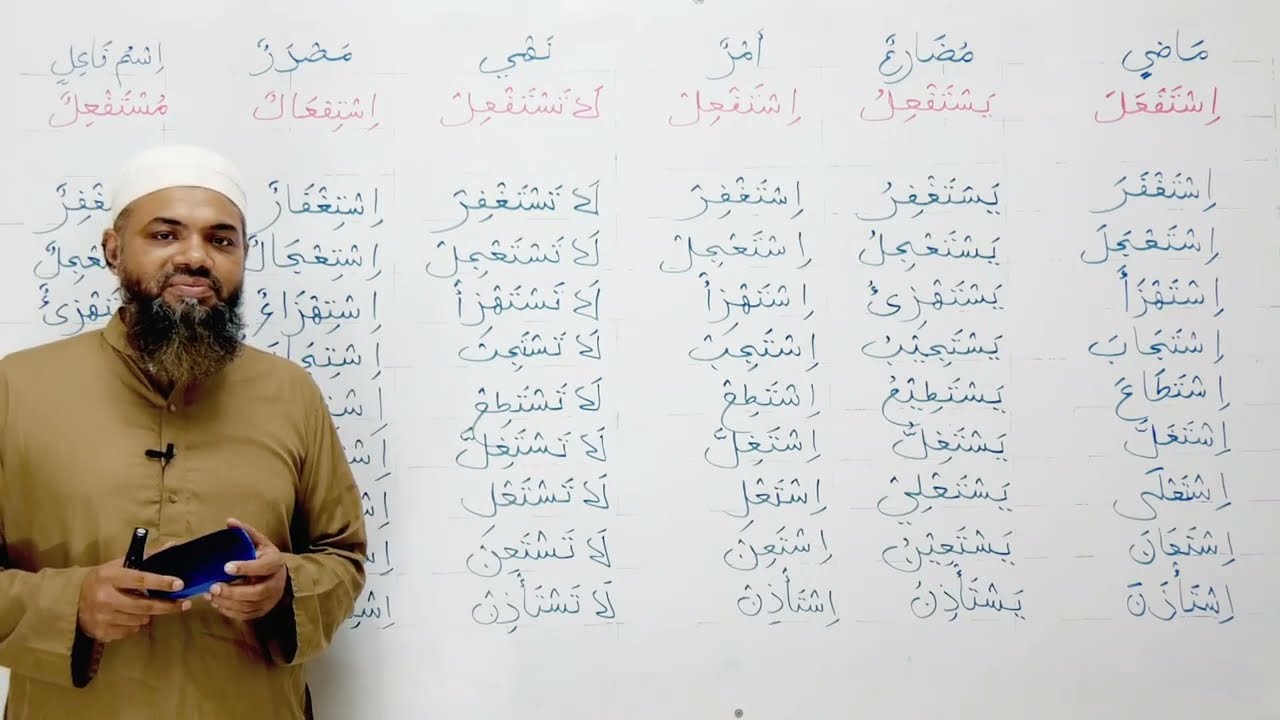 مَاضِي مُضَارِعٌ أَمْرٌ نَهْي مَصْدَرٌ اِسْمُ فَاعِلٍ
اِسْتَفْعَلَ يَسْتَفْعِلُ اِسْتَفْعِلْ لَا تَسْتَفْعِلْ اِسْتِفْعَالٌ مُسْتَفْعِلٌ
اِسْتَغْفَرَ يَسْتَغْفِرُ اِسْتَغْفِرْ لَا تَسْتَغْفِرْ اِسْتِغْفَارٌ
اِسْتَعْجَلَ يَسْتَعْجِلُ اِسْتَعْجِلْ لَا تَسْتَعْجِلْ اِسْتِعْجَالٌ
اِسْتَهْزَأَ يَسْتَهْزِئُ اِسْتَهْزِأْ لَا تَسْتَهْزِأْ اِسْتِهْزَاءٌ
اِسْتَجَابَ يَسْتَجِيْبُ اِسْتَجِبْ لَا تَسْتَجِبْ
اِسْتَطَاعَ يَسْتَطِيْعُ اِسْتَطِعْ لَا تَسْتَطِعْ
اِسْتَغَلَّ يَسْتَغِلُّ اِسْتَغِلَّ لَا تَسْتَغِلَّ
اِسْتَعْلَى يَسْتَعْلِيْ اِسْتَعْلِ لَا تَسْتَعْلِ
اِسْتَعَانَ يَسْتَعِيْنُ اِسْتَعِنْ لَا تَسْتَعِنْ
اِسْتَأْذَنَ يَسْتَأْذِنُ اِسْتَأْذِنْ لَا تَسْتَأْذِنْ